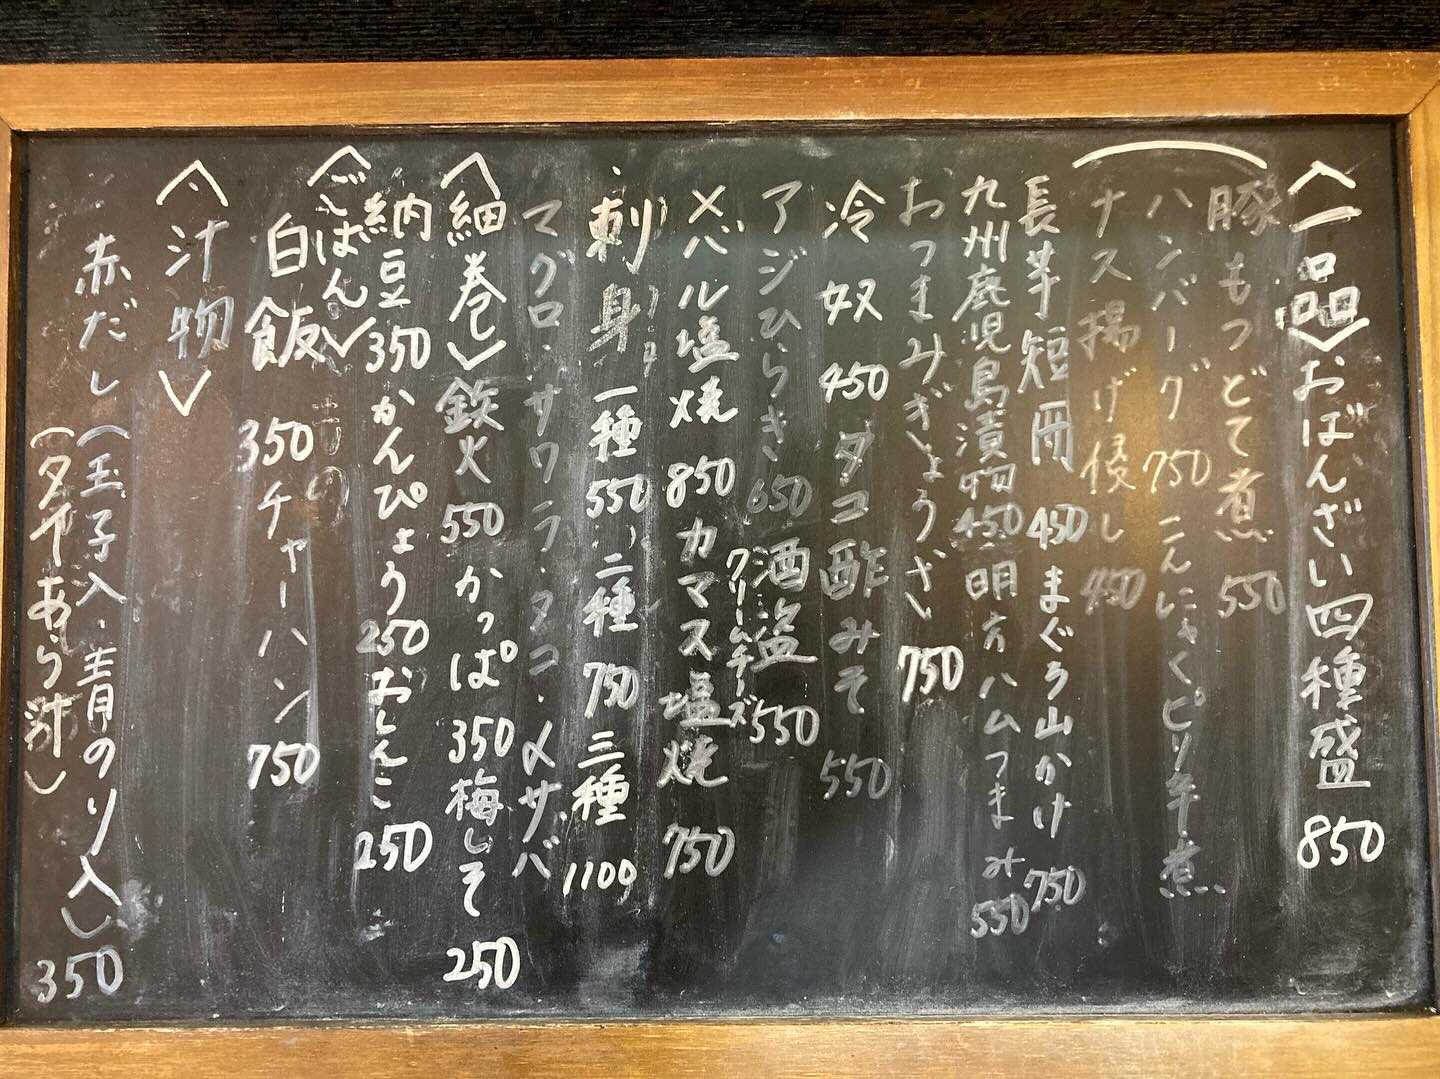 〈一品〉おばんざい四種盛 850
豚もつどて煮 550
ハンバーグ 750 こんにゃくピリ辛煮
ナス揚げ浸し 450
長芋短冊 450 まぐろ山かけ 750
九州鹿児島漬物 450 明方ハムつまみ 550
おつまみぎょうざ 750
冷奴 450 タコ酢みそ 550
アジひらき 650 酒盗クリームチーズ 550
メバル塩焼 850 カマス塩焼 750
刺身 一種 550 二種 750 三種 1100
マグロ・サワラ・タコ・〆サバ
〈細巻〉鉄火 550 かっぱ 350 梅しそ 250
納豆 350 かんぴょう 250 おしんこ 250
〈ごはん〉
白飯 350 チャーハン 750
〈汁物〉
赤だし(玉子入・青のり入) 350
(あら汁)